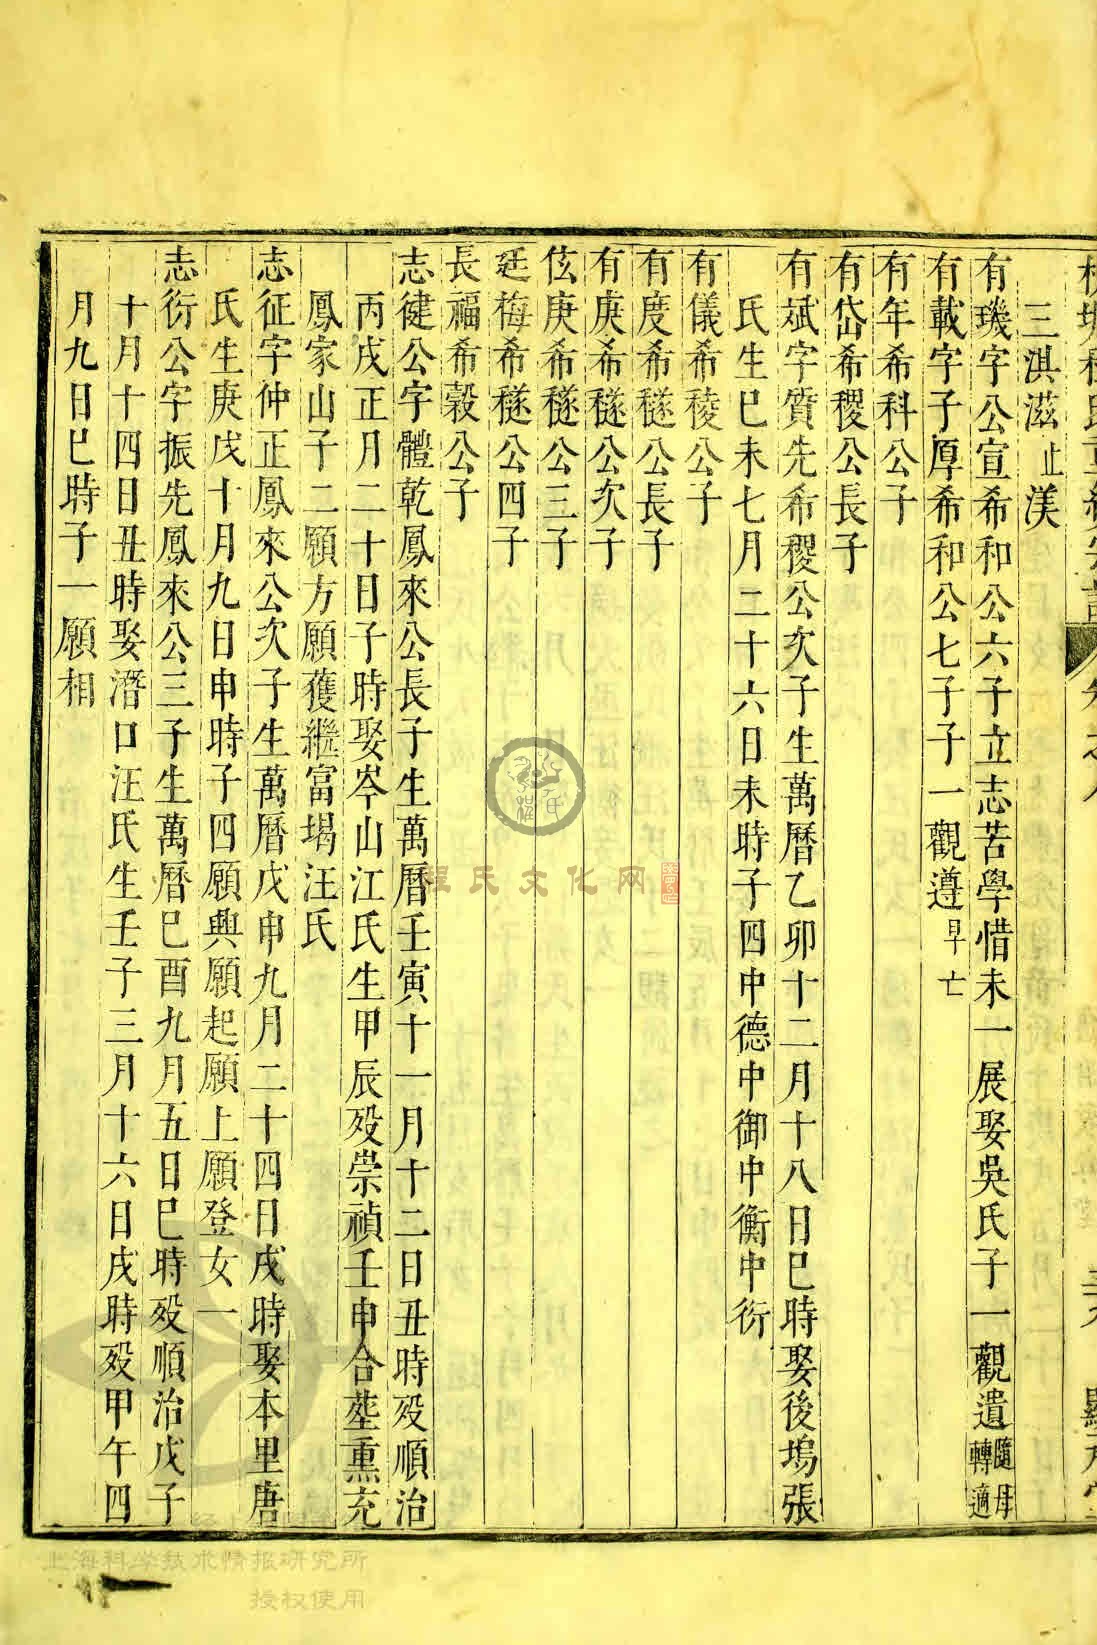 三淇滋止渼
有璣字公宣希和公六子立志苦學惜未一展娶吳氏子一觀遺隨母轉適
有載字子厚希和公七子子一觀遵早亡
有年希科公子
有岱希稷公長子
有斌字質先希稷公次子生萬曆乙卯十二月十八日巳時娶後塢張
氏生巳未七月二十六日未時子四中德中御中衡中衍
有儀希稜公子
有度希𥢶公長子
有庚希𥢶公次子
伭庚希𥢶公三子
廷梅希𥢶公四子
長福希穀公子
志徤公字體乾鳳來公長子生萬曆壬寅十一月十二日丑時殁順治
丙戌正月二十日子時娶岑山江氏生甲辰殁崇禎壬申合塟熏充
鳳家山子二願方願獲繼富堨汪氏
志征字仲正鳳來公次子生萬曆戊申九月二十四日戌時娶本里唐
氏生庚戌十月九日申時子四願興願起願上願登女一
志衍公字振先鳳來公三子生萬曆巳酉九月五日巳時殁順治戊子
十月十四日丑時娶潛口汪氏生壬子三月十六日戌時殁甲午四
月九日巳時子一願相
程氏文化网
上海科学技术情报研究所
授权使用